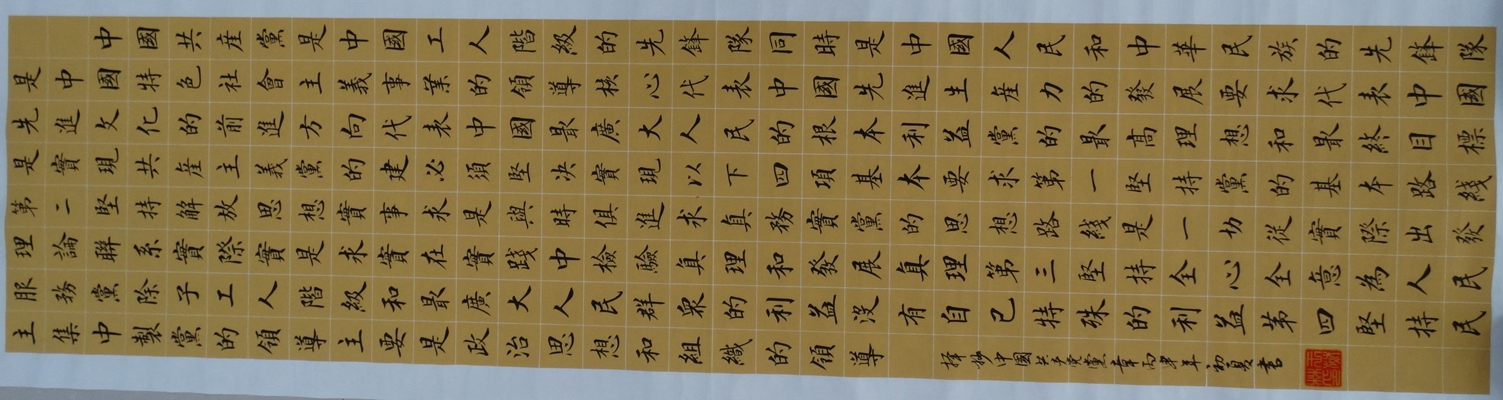 中國共産黨是中國工人階級的先鋒隊同時是中國人民和中華民族的先鋒隊
是中國特色社會主義事業的領導核心代表中國先進生産力的發展要求代表中國
先進文化的前進方向代表中國最廣大人民的根本利益黨的最高理想和最終目標
是實現共産主義黨的建必須堅決實現以下四項基本要求第一堅持黨的基本路綫
第二堅持解放思想實事求是與時俱進求真務實黨的思想路綫是一切從實際出發
理論聯系實際實是求實在實踐中檢驗真理和發展真理第三堅持全心全意為人民
服務黨除子工人階級和最廣大人民群衆的利益没有自己特殊的利益第四堅持民
主集中製黨的領導主要是政治思想和組織的領導
擇抄中國共产党黨章丙申年初夏書